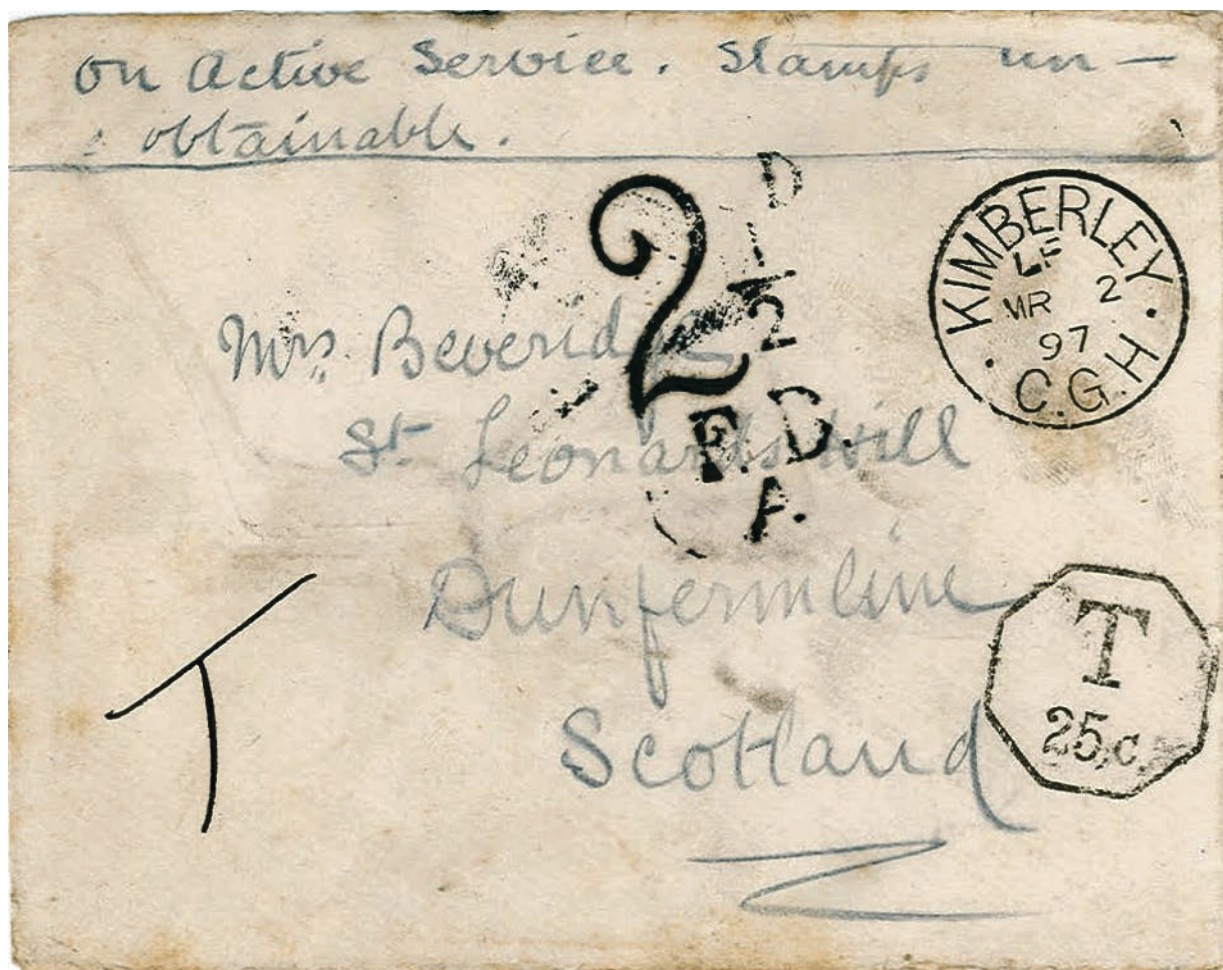 On Active Service. Stamps un—
obtainable.
KIMBERLEY
LF
MR 2
97
C.G.H.
2
D
1
2
D.
F.
A.
Mrs. Beveridge
St Leonards Hill
Dunfermline
Scotland
T
T
25c.